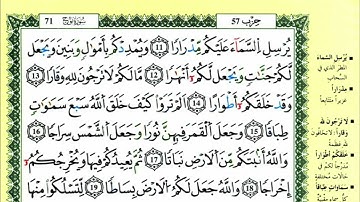 71 سورة نوح حزب 57
يُرْسِلِ السَّمَآءَ عَلَيْكُم مِّدْرَارًا 11 وَيُمْدِدْكُم بِأَمْوَٰلٍ وَبَنِينَ وَيَجْعَل
لَّكُمْ جَنَّٰتٍ وَيَجْعَل لَّكُمُۥٓ أَنْهَٰرًا 12 مَّا لَكُمْ لَا تَرْجُونَ لِلهِ وَقَارًا 13
وَقَدْ خَلَقَكُمُۥٓ أَطْوَارًا 14 أَلَمْ تَرَوْا كَيْفَ خَلَقَ اَللَّهُ سَبْعَ سَمَٰوَٰتٍ
طِبَاقًا 15 وَجَعَلَ اَلْقَمَرَ فِيهِنَّ نُورًا وَجَعَلَ اَلشَّمْسَ سِرَاجًا 16
وَاللَّهُ أَنۢبَتَكُم مِّنَ اَلْأَرْضِ نَبَاتًا 17 ثُمَّ يُعِيدُكُمْ فِيهَا وَيُخْرِجُكُمُۥٓ
إِخْرَاجًا 18 وَاللَّهُ جَعَلَ لَكُمُ اَلْأَرْضَ بِسَاطًا 19 لِّتَسْلُكُوا مِنْهَا
يُرْسِلِ السَّمَاءَ
المطر الذي في
السحاب
مِدْرَارًا
غزيرًا متتابعًا
لَا تَرْجُونَ لِلهِ
وَقَارًا
خَلَقَكُمْ أَطْوَارًا
سَمَٰوَاتٍ طِبَاقًا